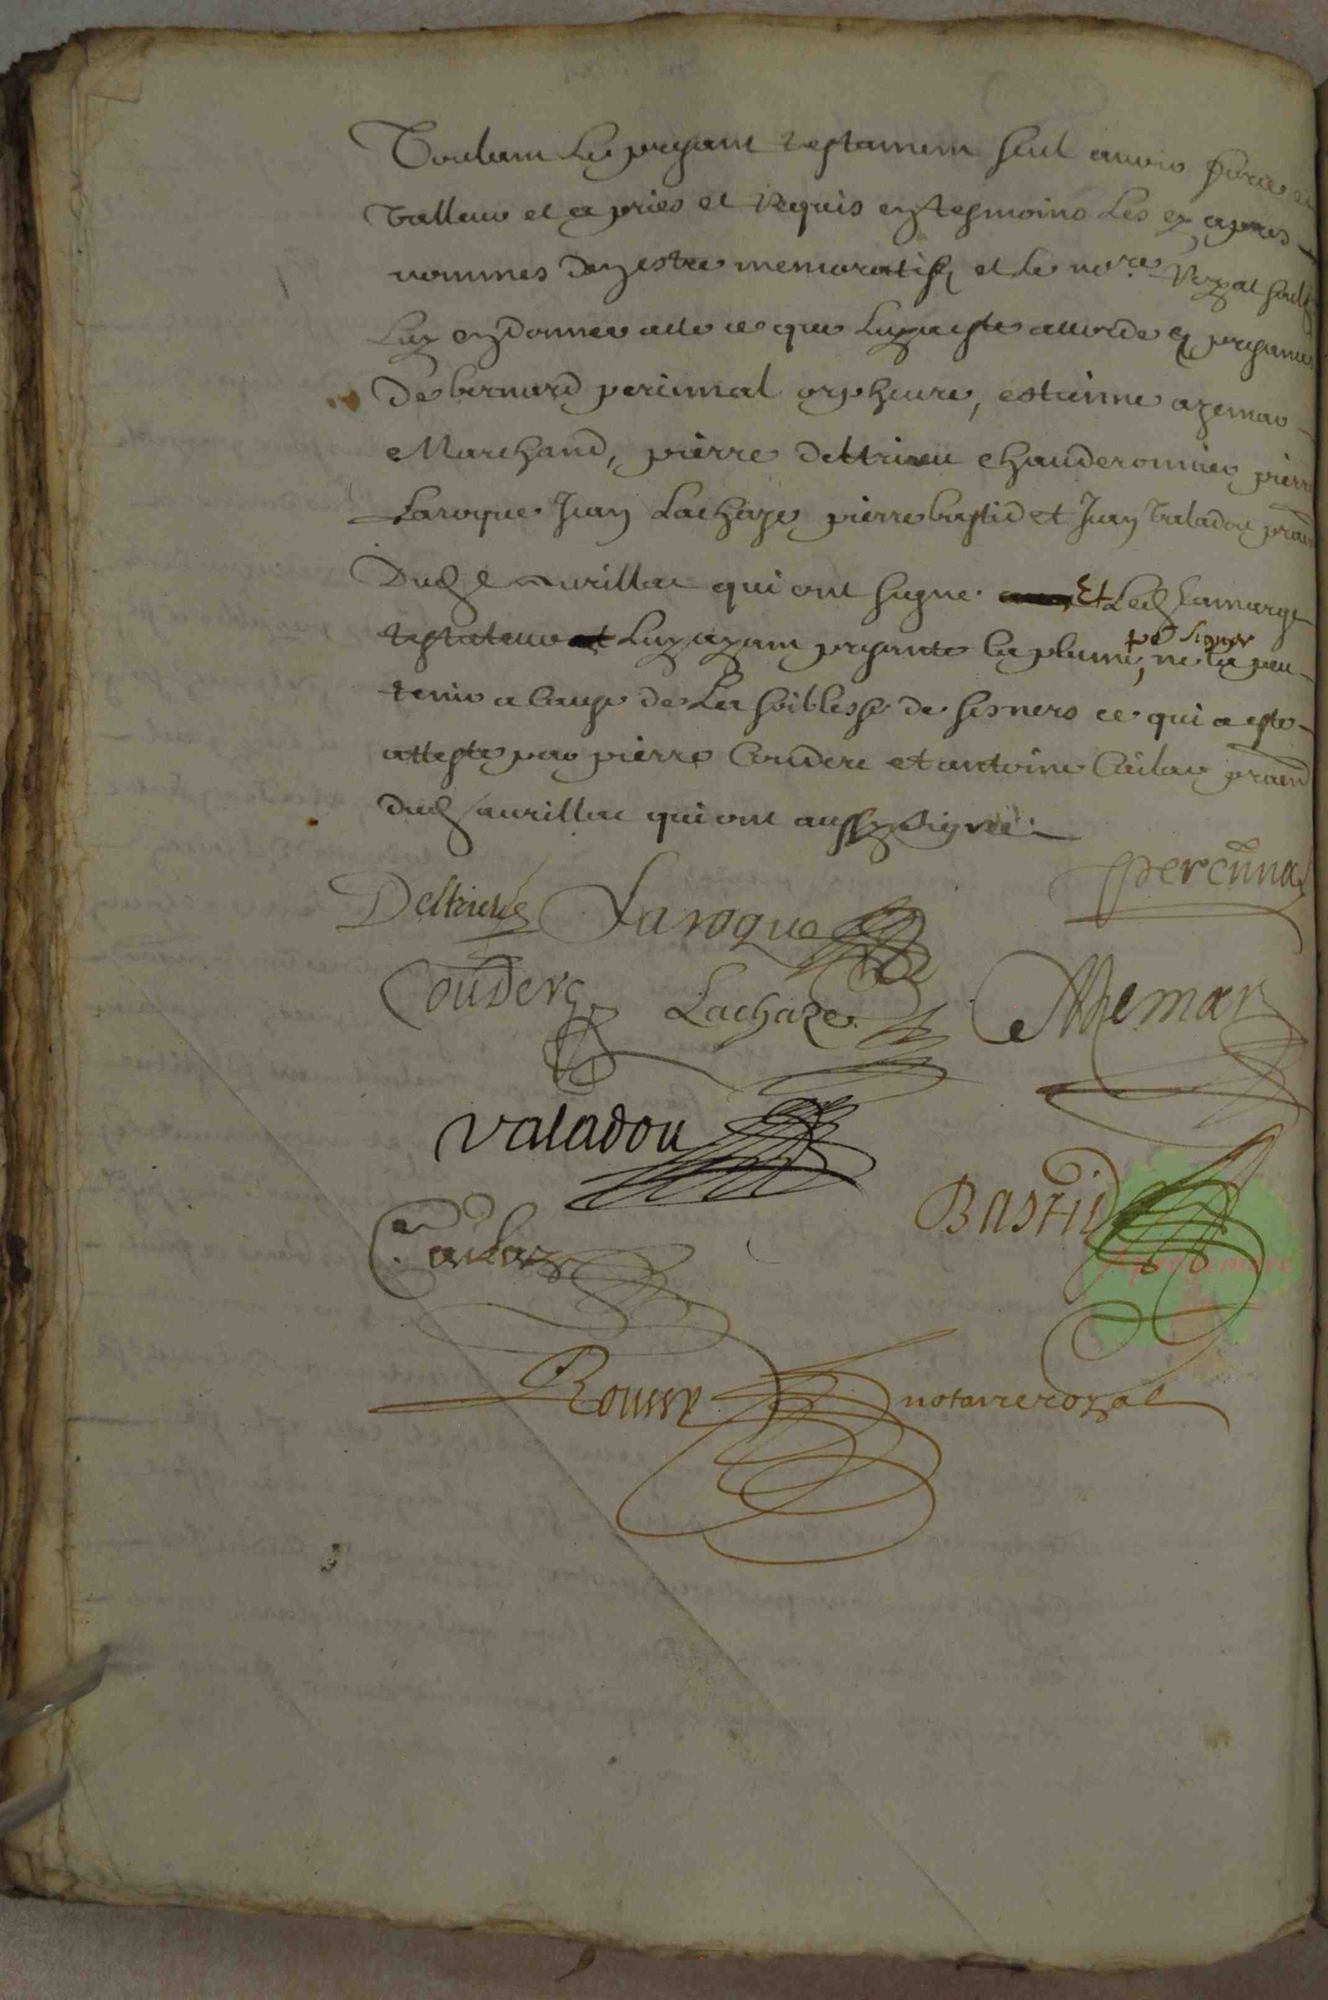 Voulant le presant testament seul avoir force et
valleur et a pries et requis en tesmoins les cy apres
nommes d'en estre memoratifs et le nore royal soubz
luy en donner acte ce que luy a este accorde en presance
de bernard percimal orpheure, estienne azemar
Marchand, pierre deltrieu chauderonnier pierre
Laroque Juan Lachaze pierre bastid et Juan Valadou praen
dud Aurillac qui ont signe Et led Lamarge
testateur luy ayant presante la plume, ne la peu
po signer
tenir a cause de la foiblesse de ses ners ce qui a este
atteste par pierre Couderc et antoine Cailar praen
dud aurillac qui ont aussy signe
Percimal
Deltrieu Laroque
Couderc Lachaze Azemar
valadou
BASTID
Cailar
Aprogemere
notaire royal